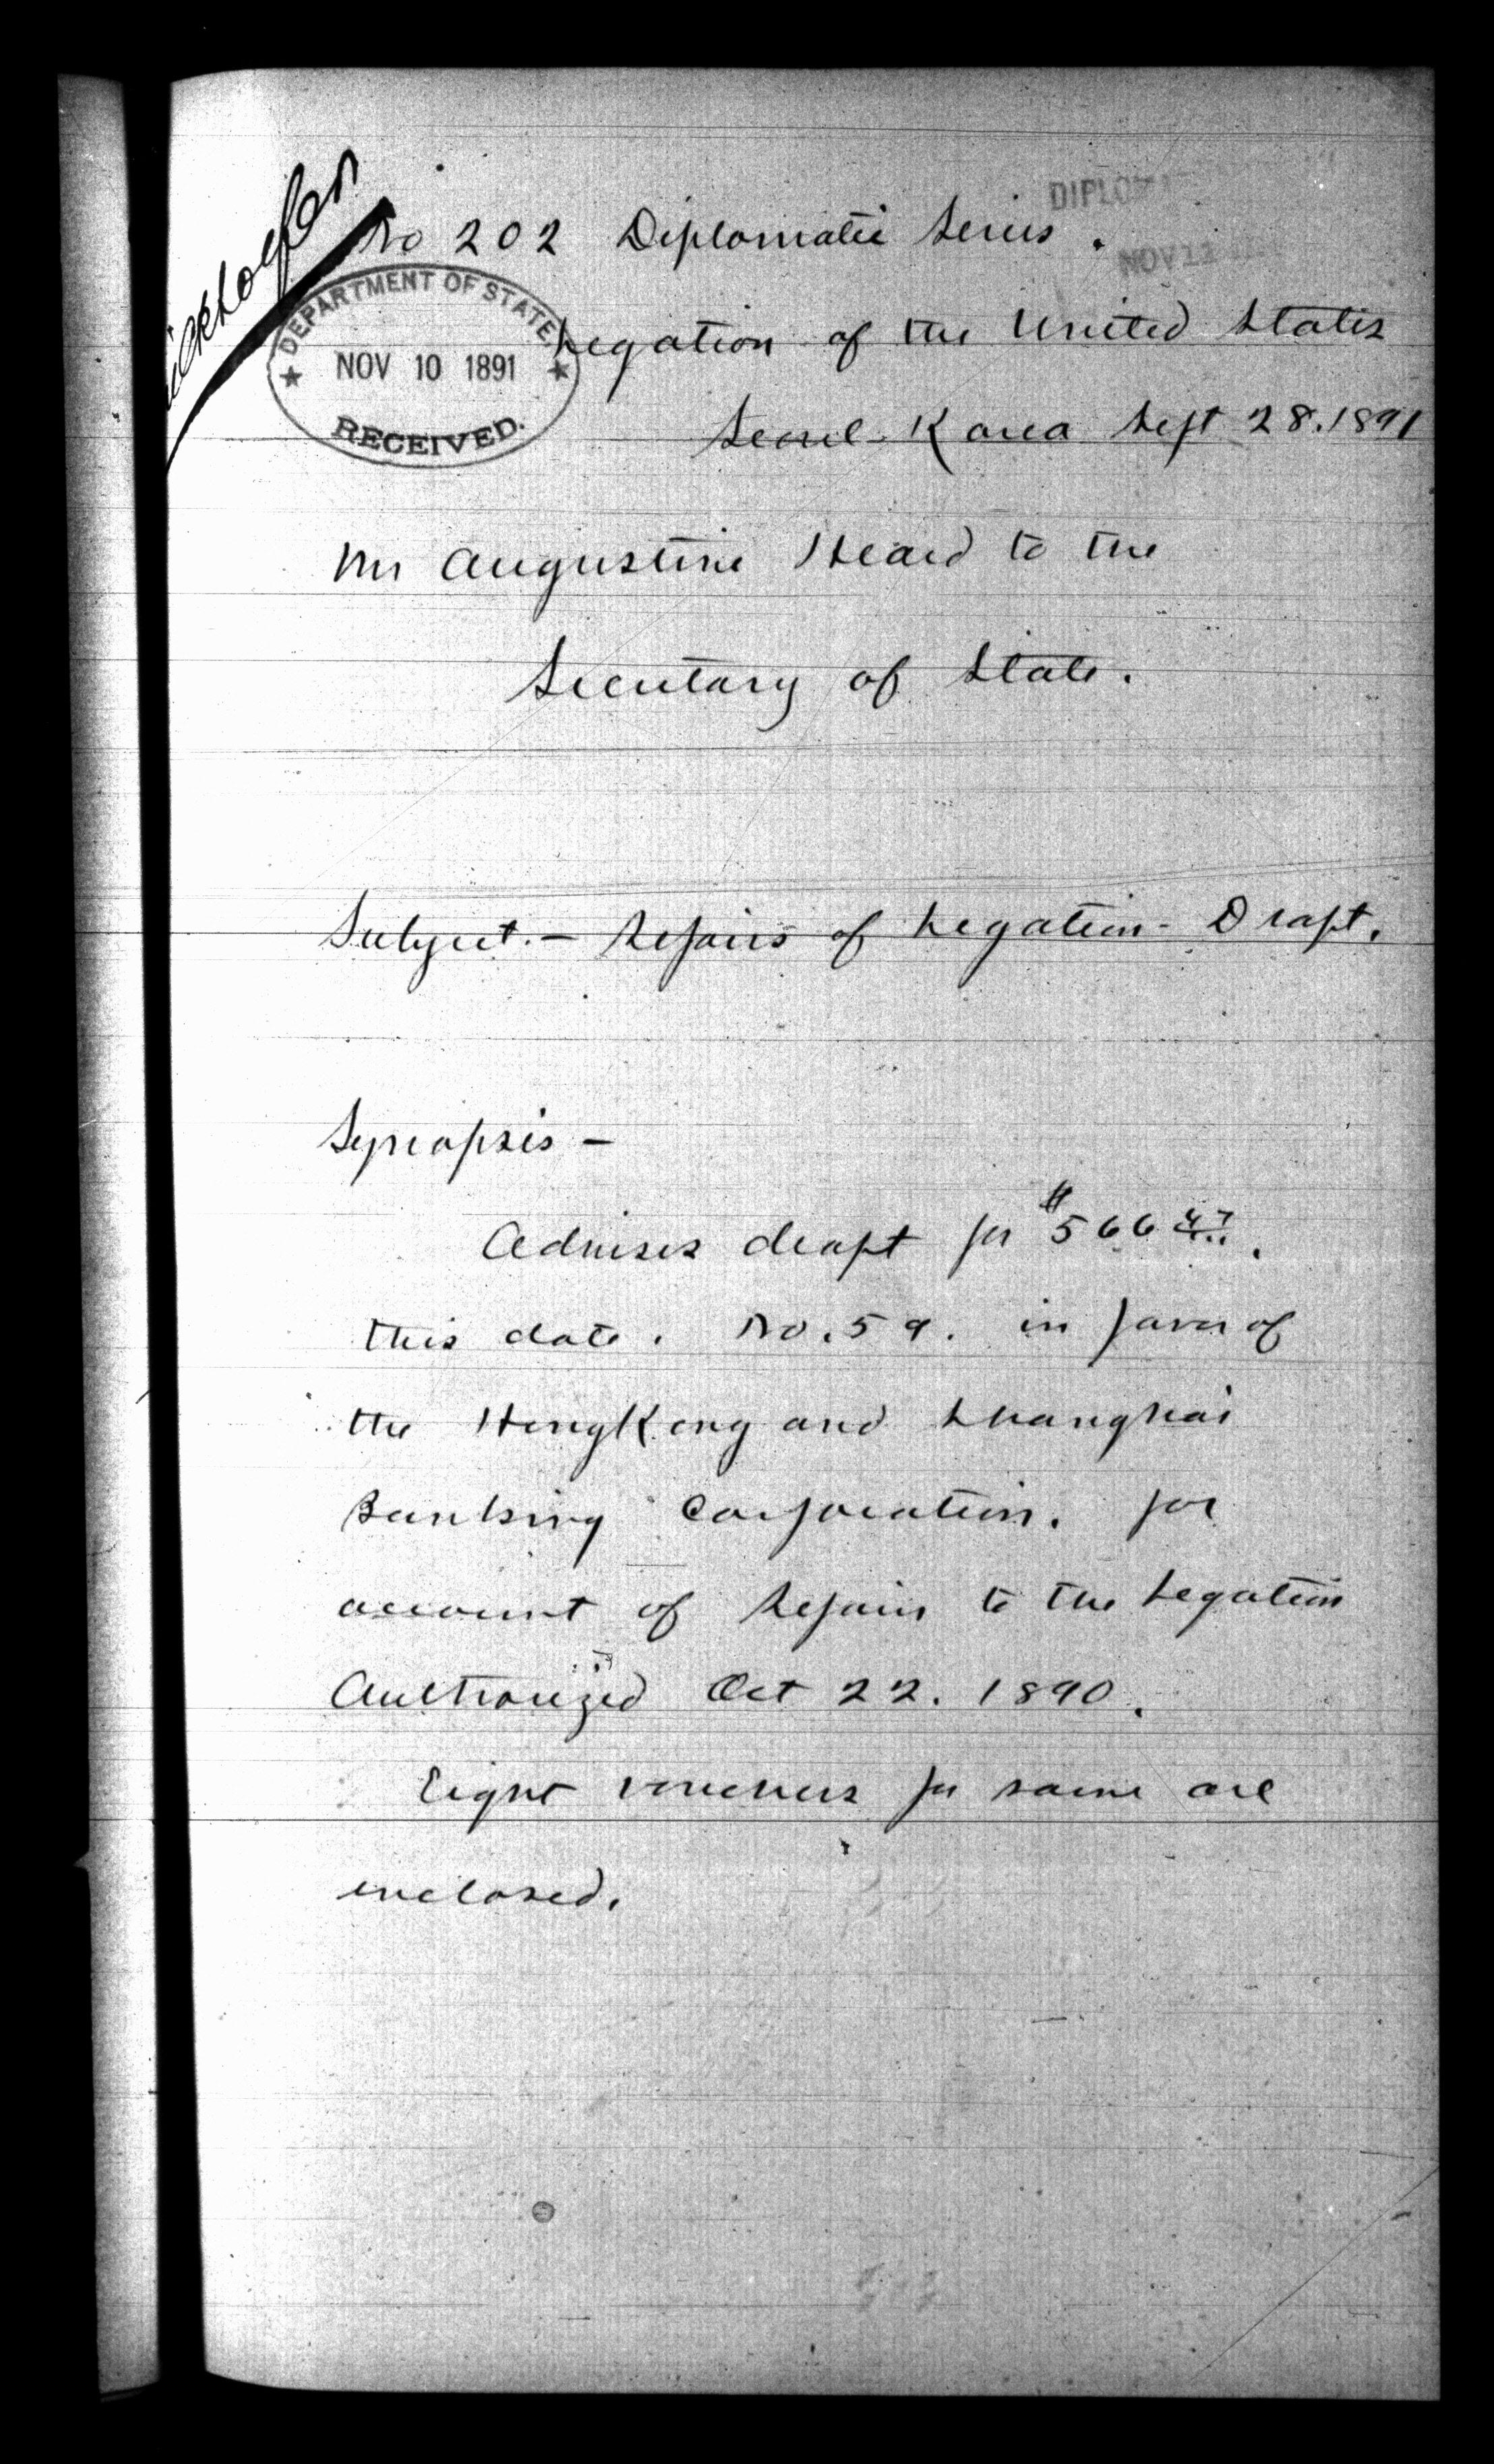 No 202 Diplomatic Series.
DEPARTMENT OF STATE
NOV 10 1891
RECEIVED.
NOV 12
Legation of the United States
Seoul Korea Sept 28. 1891
Mr Augustine Heard to the
Secretary of State.
Subject. — Repairs of Legation - Draft.
Synopsis —
Advises draft for $566 47/..
this date. No. 59. in favor of
the HongKong and Shanghai
Banking Corporation. for
account of Repairs to the Legation
Authorized Oct 22. 1890.
Eight vouchers for same are
enclosed.